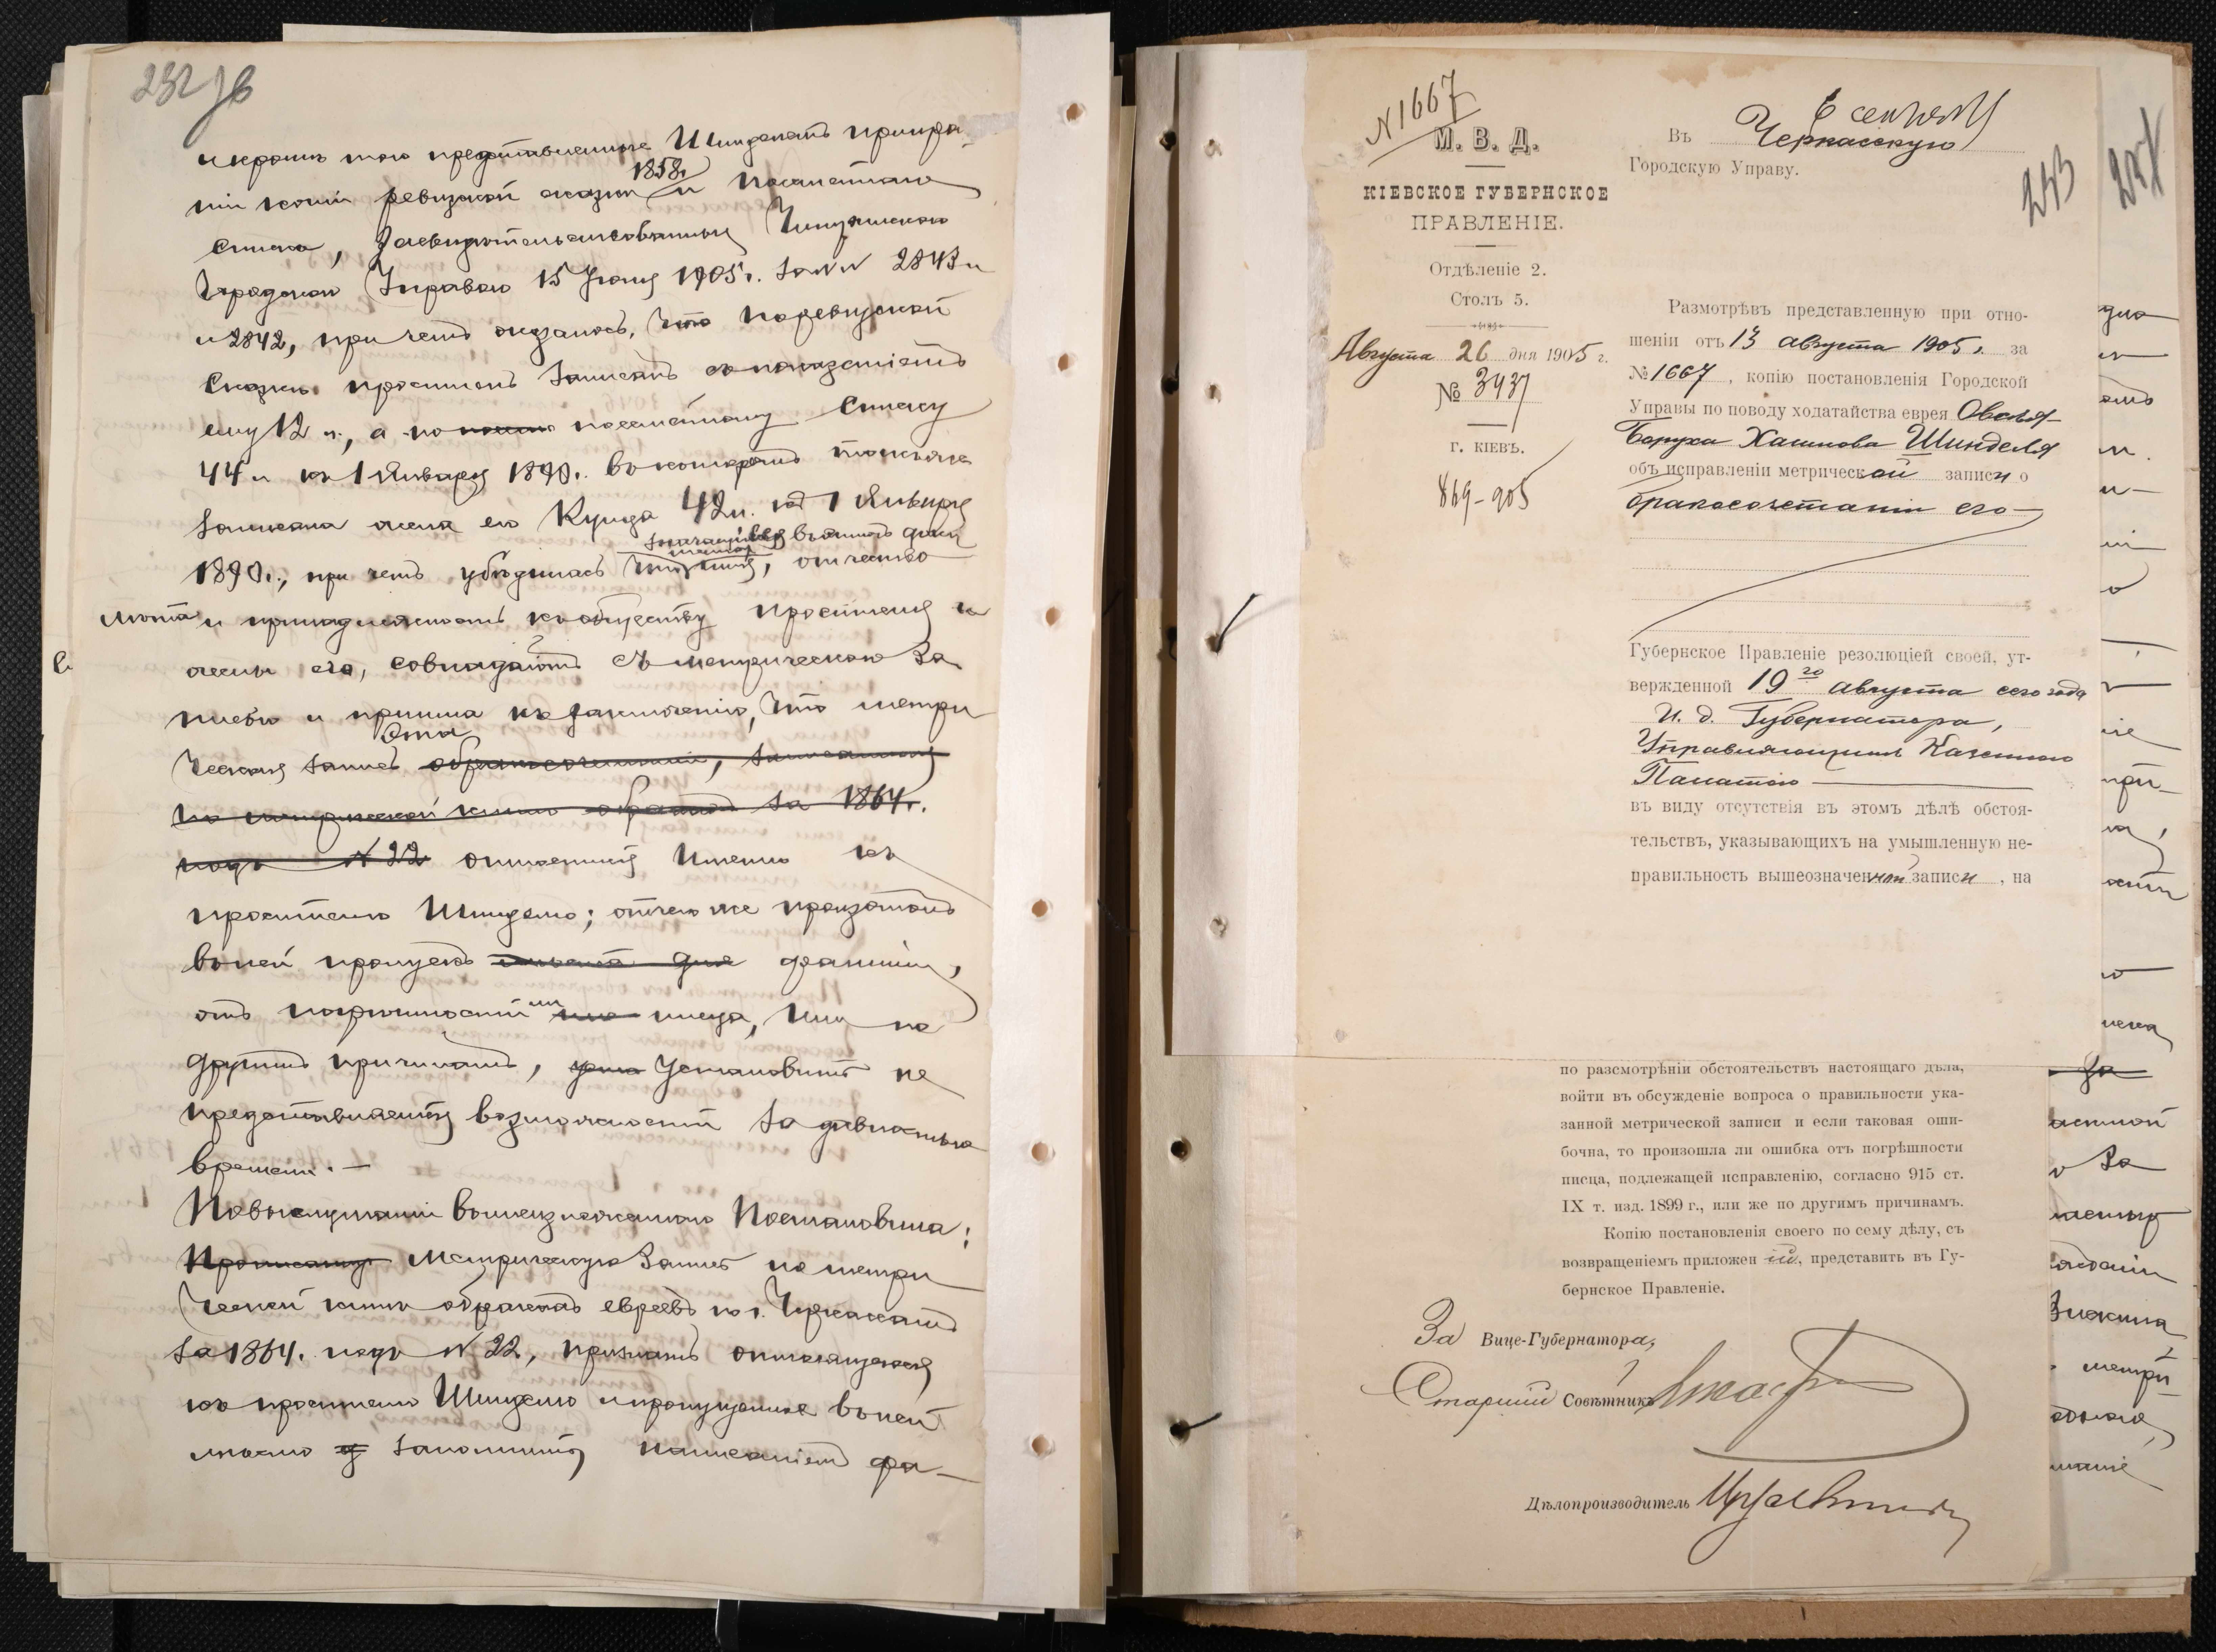 232 зв
и кроме того представленные Шинделемъ приира
ніи копіи ревизской сказки 1858 г. и посемейнаго
списка, засвидѣтельствованныя Чигиринскою
Городскою Управою 15 Іюня 1905 г. за №№ 2843 и
и 2842, при чемъ оказалось, что по ревизской
сказкѣ проситель записанъ съ показаніемъ
ему 12 л., а по посемейному списку
44 л. къ 1 Января 1890 г. въ которомъ также
записана жена его Куида 42 л. къ 1 Января
значащіяся въ этихъ
1890 г., при чемъ убѣдилась что имя, отчество
лѣта и принадлежность къ обществу просителя и
жены его, совпадаютъ съ метрическою за
писью и пришла къ заключенію, что метри
эта
ческая запись о бракосочетаніи, записанная
по метрической книгѣ о бракахъ за 1864 г.
подъ № 22 относится именно къ
просителю Шинделю; отчего же произошелъ
въ ней пропускъ фамиліи,
отъ погрѣшности ли писца, или по
другимъ причинамъ, установить не
представляется возможности за давностью
времени. —
По выслушаніи вышеизложеннаго Постановила:
Прописанную Метрическую запись по метри
ческой книгѣ о бракахъ евреевъ по г. Черкассамъ
за 1864 г. подъ № 22, признать относящеюся
къ просителю Шинделю и пропущенное въ ней
мѣсто заполнить написаніемъ фа-
N 1667
М. В. Д.
КІЕВСКОЕ ГУБЕРНСКОЕ
ПРАВЛЕНІЕ.
Отдѣленіе 2.
Столъ 5.
Августа 26 дня 1905 г.
№ 3437
г. КІЕВЪ.
869-905
6 сентяб
Въ Черкасскую
Городскую Управу.
243
Размотрѣвъ представленную при отно-
шеніи отъ 13 августа 1905 г. за
№ 1667, копію постановленія Городской
Управы по поводу ходатайства еврея Овсея-
Боруха Хаимова Шинделя
объ исправленіи метрической записи о
бракосочетаніи его
Губернское Правленіе резолюціей своей, ут-
вержденной 19го августа сего года
И. д. Губернатора,
Управляющимъ Казенною
Палатою
въ виду отсутствія въ этомъ дѣлѣ обстоя-
тельствъ, указывающихъ на умышленную не-
правильность вышеозначенной записи, на
по разсмотрѣніи обстоятельствъ настоящаго дѣла,
войти въ обсужденіе вопроса о правильности ука-
занной метрической записи и если таковая оши-
бочна, то произошла ли ошибка отъ погрѣшности
писца, подлежащей исправленію, согласно 915 ст.
IX т. изд. 1899 г., или же по другимъ причинамъ.
Копію постановленія своего по сему дѣлу, съ
возвращеніемъ приложеній, представить въ Гу-
бернское Правленіе.
За Вице-Губернатора,
Старшій Совѣтникъ
Дѣлопроизводитель